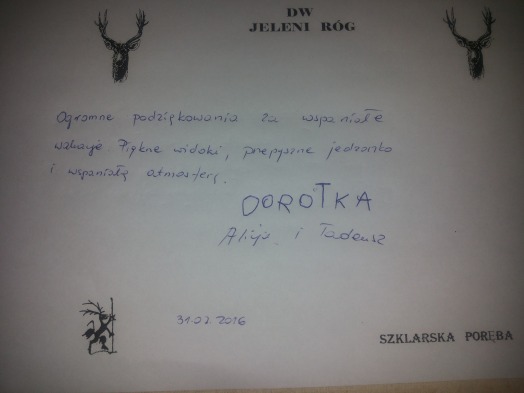 DW
JELENI RÓG
Ogromne podziękowania za wspaniałe
wakacje. Piękne widoki, przepyszne jedzonko
i wspaniałą atmosferę.
DOROTKA
Alicja i Tadeusz
31.07.2016
SZKLARSKA PORĘBA